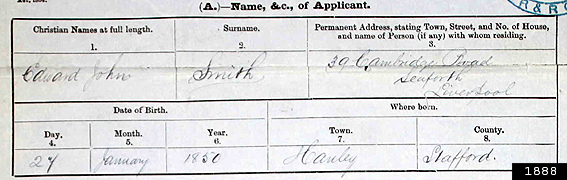 (A.)—Name, &c., of Applicant.
Christian Names at full length. Surname. Permanent Address, stating Town, Street, and No. of House,
and name of Person (if any) with whom residing.
1. 2. 3.
Edward John Smith 39 Cambridge Road
Seaforth
Liverpool
Date of Birth. Where born.
Day. Month. Year. Town. County.
4. 5. 6. 7. 8.
27 January 1850 Hanley Stafford.
1888